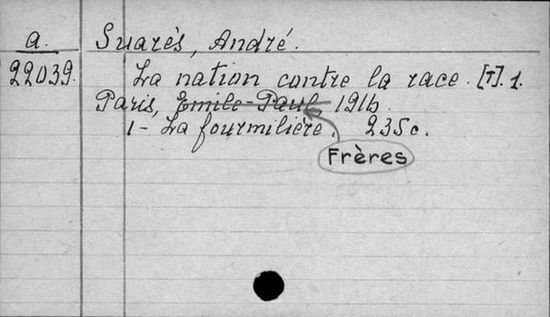 a. Suarès, André.
22039. La nation contre la race. [T]. 1.
Paris, Emile-Paul, 1916.
1- La fourmilière. 235c.
Frères